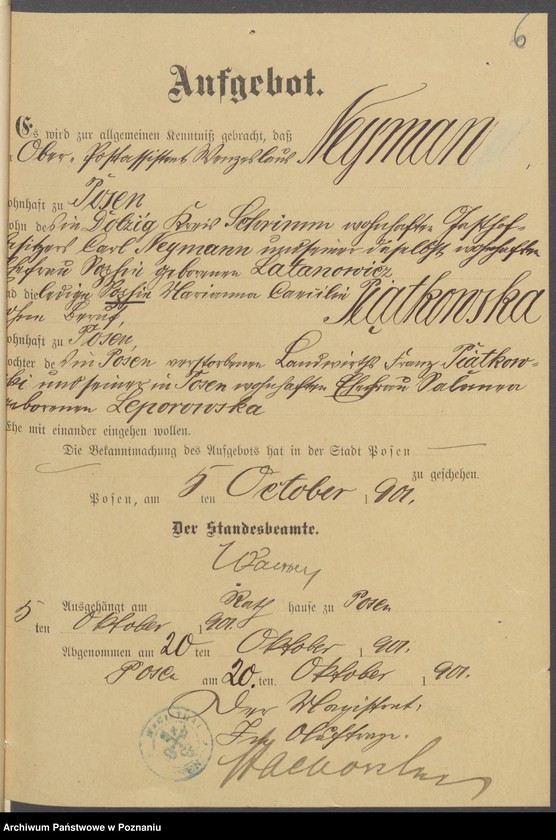 6
Aufgebot.
Es wird zur allgemeinen Kenntniß gebracht, daß
Ober-Postassistent Wenzeslaus Neymann
ohnhaft zu Posen
ohn des in Dolzig Kreis Schrimm wohnhaften Gasthof-
besitzers Carl Neymann und seiner daselbst wohnhaften
Ehefrau Sophie geborenen Latanowicz
nd die ledige Sophie Marianna Caecilie Piątkowska
ohne Beruf,
ohnhaft zu Posen,
ochter des in Posen verstorbenen Landwirths Franz Piątkow-
ski und seiner in Posen wohnhaften Ehefrau Salomea
geborenen Leporowska
Ehe mit einander eingehen wollen.
Die Bekanntmachung des Aufgebots hat in der Stadt Posen
zu geschehen.
Posen, am 5 ten October 1901.
Der Standesbeamte.
Ausgehängt am Rath hause zu Posen
5 ten Oktober 1901.
Abgenommen am 20 ten Oktober 1901.
Posen am 20. ten. Oktober 1901.
Der Magistrat.
Im Auftrage.
Archiwum Państwowe w Poznaniu
www.szukajwarchiwach.gov.pl